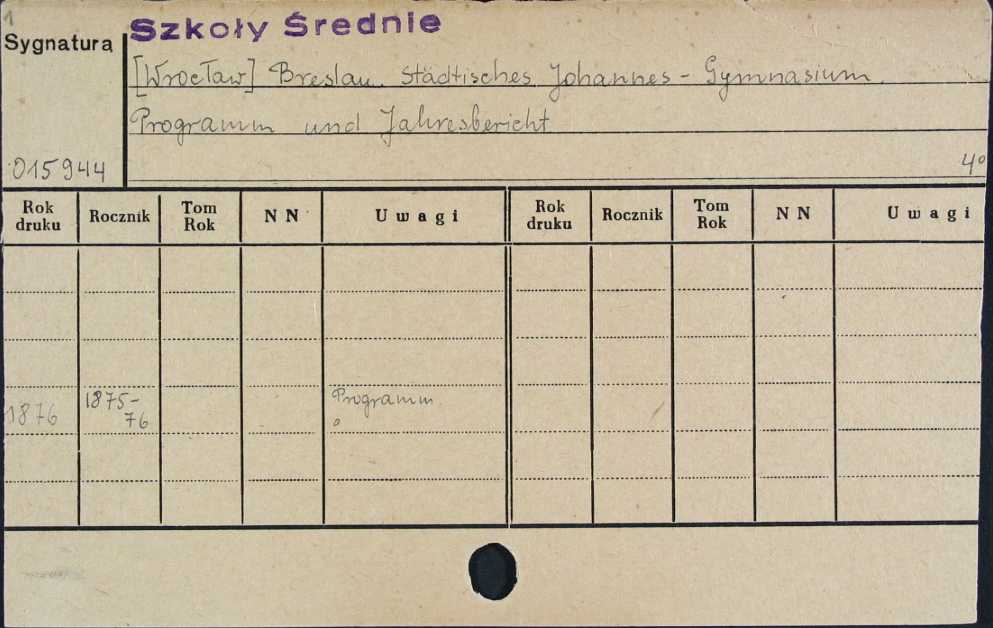 1
Szkoły Średnie
Sygnatura
[Wrocław] Breslau. Städtisches Johannes-Gymnasium.
Programm und Jahresbericht
015944
4°
Rok druku Rocznik Tom Rok N N Uwagi Rok druku Rocznik Tom Rok N N Uwagi
1876 1875-76 Programm.